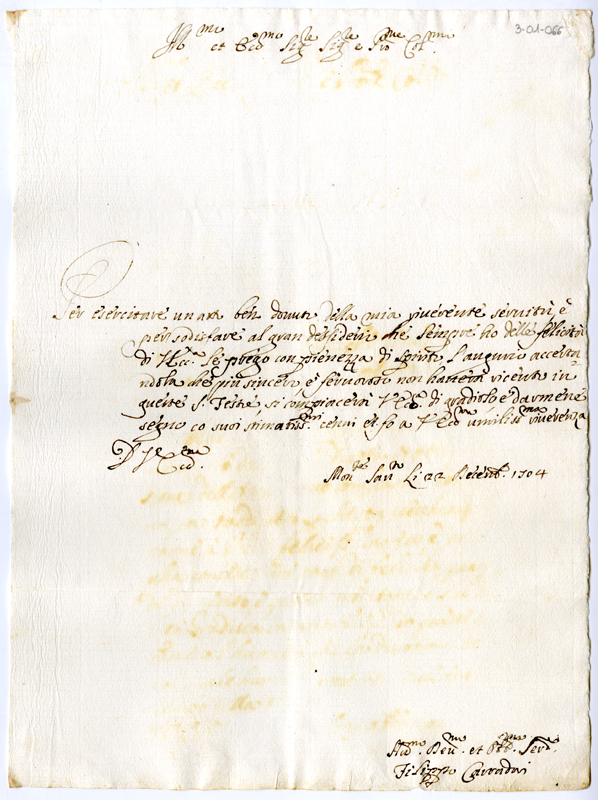 3-01-066
Ill.mo et Ecc.mo Sig.re Sig.re e P'ron Col.mo
Per esercitare un atto ben dovuto della mia riverente servitù, è
per sodisfare al gran desiderio che sempre ho delle felicità
di V. Ecc.a le prego con pienezza di Spirito l'augurio accerta-
ndola che più sincero è fervoroso non haverà ricevuto in
queste S.te Feste, si compiacerà V. Ecc.a di gradirlo è darmene
segno co suoi stimatiss.mi cenni et fo a V. Ecc.a umiliss.ma riverenza
D. V. Ecc.a
Mon.te San.to Li 22 Decemb. 1704
Hu.mo Dev.mo et Obb.mo Ser.re
Filippo Carradori